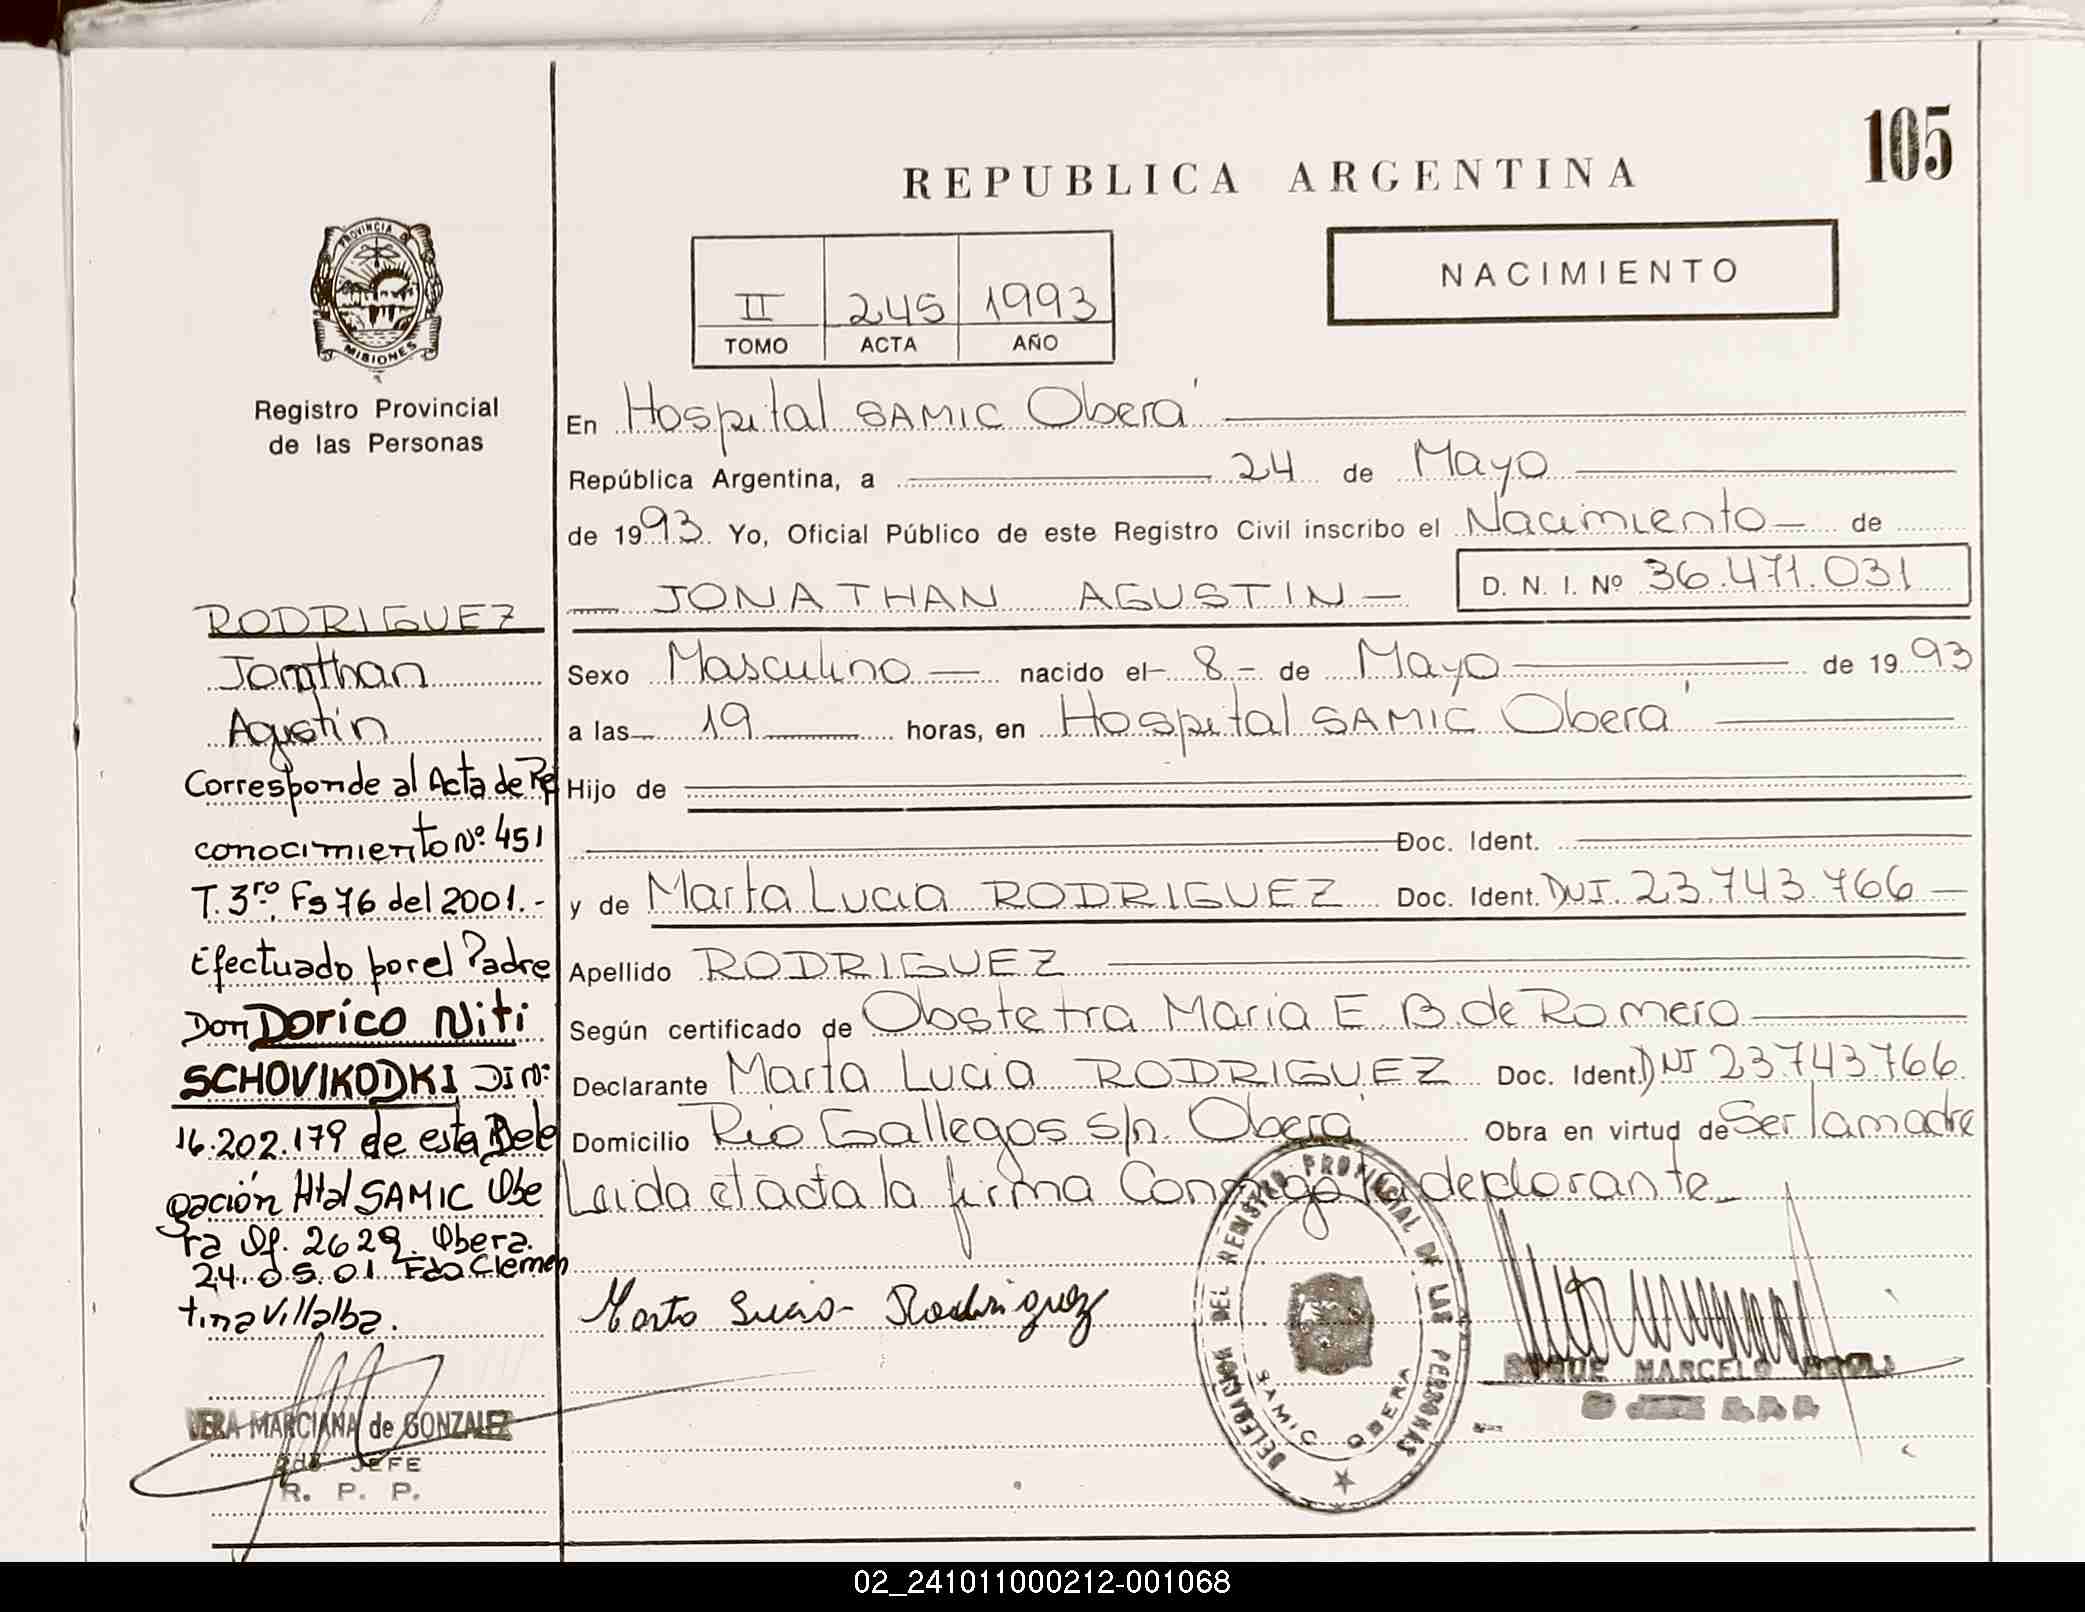 105
REPUBLICA ARGENTINA
PROVINCIA DE
MISIONES
Registro Provincial
de las Personas
II 245 1993
TOMO ACTA AÑO
NACIMIENTO
En Hospital SAMIC Oberá
República Argentina, a 24 de Mayo
de 1993 Yo, Oficial Público de este Registro Civil inscribo el Nacimiento de
JONATHAN AGUSTIN D. N. I. Nº 36.471.031
Sexo Masculino nacido el 8 de Mayo de 1993
a las 19 horas, en Hospital SAMIC Oberá
Hijo de
Doc. Ident.
y de Marta Lucia RODRIGUEZ Doc. Ident. DNI. 23.743.766
Apellido RODRIGUEZ
Según certificado de Obstetra Maria E. B. de Romero
Declarante Marta Lucia RODRIGUEZ Doc. Ident. DNI 23743766
Domicilio Rio Gallegos s/n. Oberá Obra en virtud de Ser la madre
Leida el acta la firma Conmigo la declorante
Marta Lucia Rodriguez
DELEGACION DEL REGISTRO PROVINCIAL DE LAS PERSONAS
SAMIC OBERA
ROQUE MARCELO
RODRIGUEZ
Jonathan
Agustín
Corresponde al Acta de Re
conocimiento Nº 451
T. 3ro, Fs 76 del 2001.-
Efectuado por el Padre
Don Dorico Niti
SCHOVIKODKI DI Nº
16.202.179 de esta Dele
gación Htal SAMIC Obe
ra Of. 2629. Obera.
24.05.01 Fdo Clemen
tina Villalba.
VERA MARCIANA de GONZALEZ
2do. JEFE
R. P. P.
02_241011000212-001068